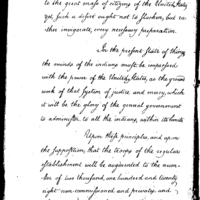 to the great mass of citizens of the United States
yet, such a defect ought not to slacken, but ra-
ther invigorate, every necessary preparation.
In the present state of things
the minds of the indians must be impressed
with the power of the United States, as the ground
work of that system of justice and mercy, which
it will be the glory of the general government
to administer to all the indians, within its limits
Upon these principles, and upon
the supposition, that the troops of the regular
establishment will be augmented to the num-
ber of two thousand, one hundred and twenty
eight non-commissioned and privates; and